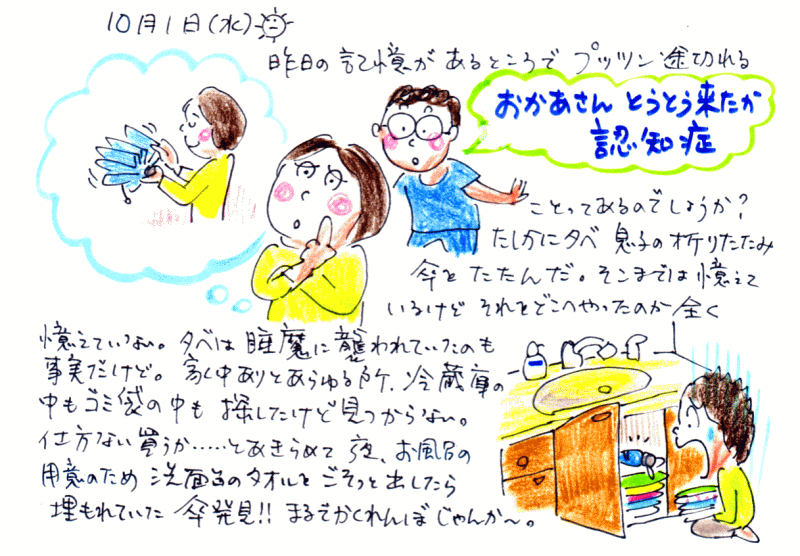 10月1日(水)
昨日の記憶があるところでプッツン途切れる
おかあさん とうとう来たか
認知症
ことってあるのでしょうか?
たしかに夕べ 息子の折りたたみ
傘をたたんだ。そこまでは憶えて
いるけど それをどこへやったのか全く
憶えていない。夕べは睡魔に襲われていたのも
事実だけど。家中ありとあらゆる所、冷蔵庫の
中もゴミ袋の中も 探したけど見つからない。
仕方ない買うか……とあきらめて 夜、お風呂の
用意のため 洗面台のタオルをごそっと出したら
埋もれていた 傘発見!! まるでかくれんぼじゃんか〜。